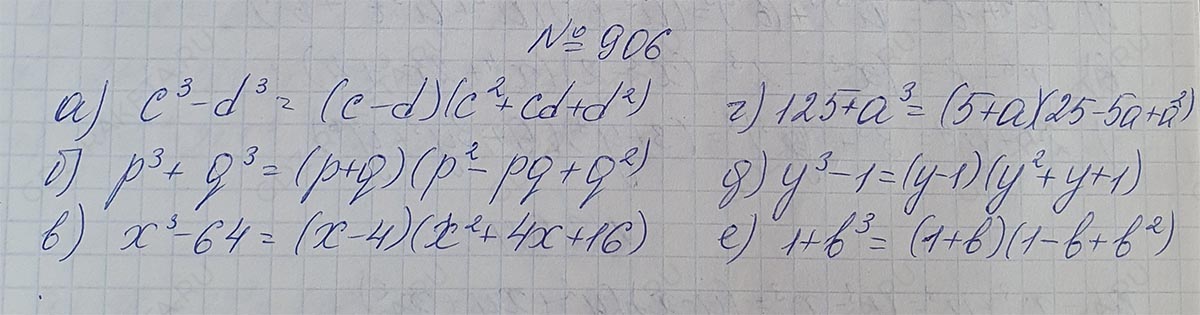 № 906
а) c³-d³= (c-d)(c²+cd+d²)
б) p³+ q³=(p+q)(p²-pq+q²)
в) x³-64=(x-4)(x²+4x+16)
г) 125+a³=(5+a)(25-5a+a²)
д) y³-1=(y-1)(y²+y+1)
е) 1+b³=(1+b)(1-b+b²)